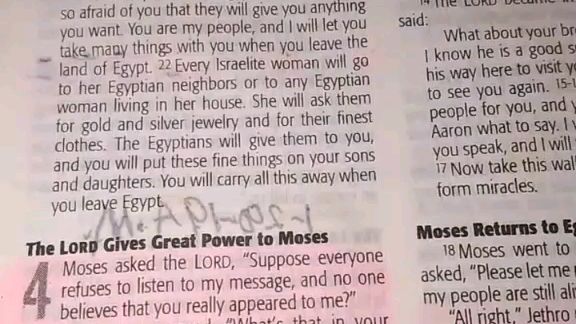 so afraid of you that they will give you anything
you want. You are my people, and I will let you
take many things with you when you leave the
land of Egypt. 22 Every Israelite woman will go
to her Egyptian neighbors or to any Egyptian
woman living in her house. She will ask them
for gold and silver jewelry and for their finest
clothes. The Egyptians will give them to you,
and you will put these fine things on your sons
and daughters. You will carry all this away when
you leave Egypt.
The LORD Gives Great Power to Moses
4 Moses asked the LORD, “Suppose everyone
refuses to listen to my message, and no one
believes that you really appeared to me?”
“What's that in your
14 The LORD
said:
What about your
I know he is a good
his way here to visit
to see you again. 15-
people for you, and
Aaron what to say. I
you speak, and I will
17 Now take this
form miracles.
Moses Returns to
18 Moses went to
asked, “Please let me
my people are still
“All right,” Jethro